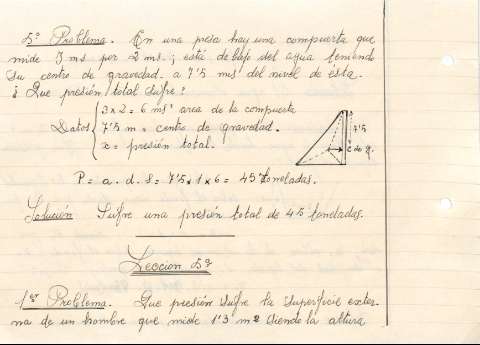 5º Problema. En una presa hay una compuerta que
mide 3 ms por 2 ms.; está debajo del agua teniendo
su centro de gravedad. a 7'5 ms' del nivel de esta.
¿ Que presión total sufre?
Datos
3 x 2 = 6 ms² area de la compuerta
7'5 m = centro de gravedad.
x = presión total.
7'5
c. de g.
P = a. d. S = 7'5 x 1 x 6 = 45 Toneladas.
Solución Sufre una presión total de 45 toneladas.
Leccion 5ª
1er Problema. Que presión sufre la superficie exter-
na de un hombre que mide 1'3 m2 siendo la altura